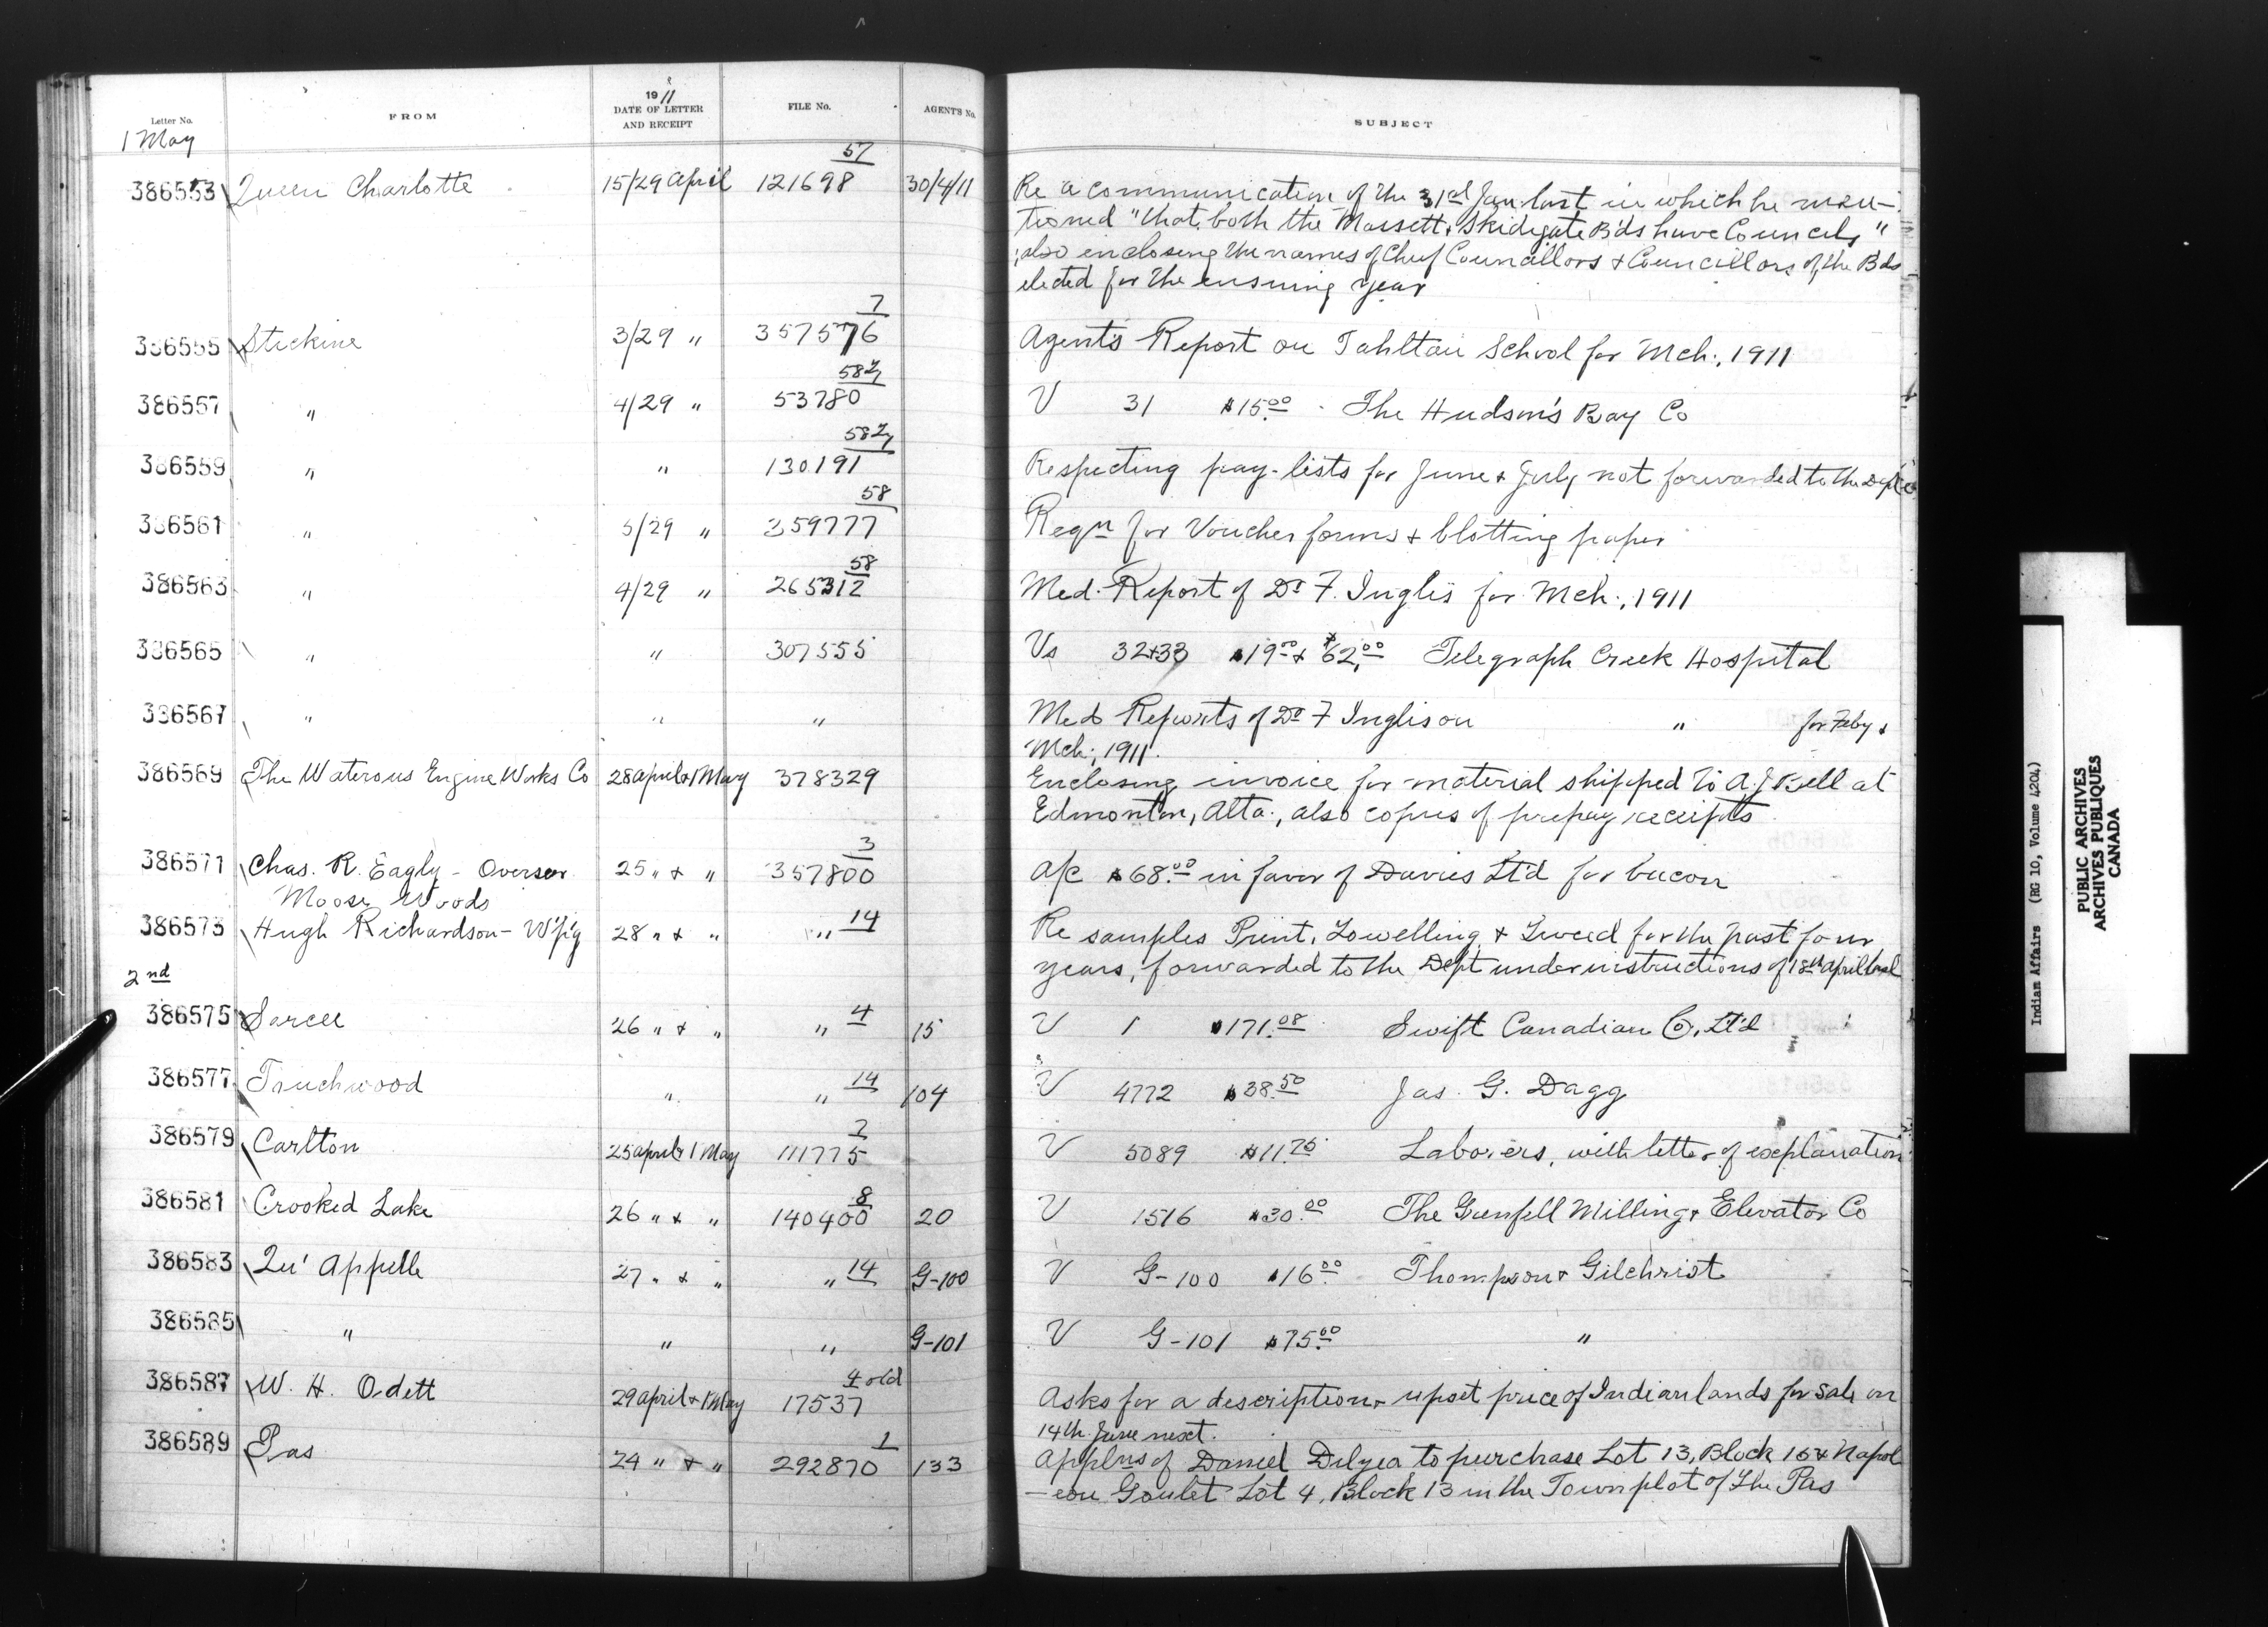 Letter No.
FROM
1911
DATE OF LETTER
AND RECEIPT
FILE No.
AGENT'S No.
SUBJECT
1 May
57
386553 Queen Charlotte 15/29 April 121698 30/4/11 Re a communication of the 31st Jan: last in which he men-
tioned "that both the Massett & Skidegate B'ds have Councils"
; also enclosing the names of Chief Councillors & Councillors of the Bds
elected for the ensuing year
7
386555 Stickine 3/29 " 357576 Agent's Report on Tahltan School for Mch:, 1911
58
386557 " 4/29 " 53780 V 31 $15.00 The Hudson's Bay Co
58
386559 " " 130191 Respecting pay-lists for June & July not forwarded to the Dept
58
386561 " 5/29 " 359777 Reqn for Voucher forms & blotting paper
58
386563 " 4/29 " 265312 Med. Report of Dr F. Inglis for Mch:, 1911
386565 " " 307555 Vs 32+33 $19.00 & $62.00 Telegraph Creek Hospital
386567 " " " Med Reports of Dr F Inglis on " for Feby &
Mch:, 1911.
386569 The Waterous Engine Works Co 28 April & 1 May 378329 Enclosing invoice for material shipped to A J Bell at
Edmonton, Alta., also copies of prepay receipts
3
386571 Chas. R. Eagly - Overseer 25 " & " 357800 A/c $68.00 in favor of Davies Lt'd for bacon
Moose Woods
386573 Hugh Richardson - W'p'g 28 " & " " 14 Re samples Print, Towelling & Tweed for the past four
years, forwarded to the Dept under instructions of 18th April last
2nd
386575 Sarcee 26 " & " " 4 15 V 1 $171.08 Swift Canadian Co. Lt'd
386577 Touchwood " " 14 104 V 4772 $38.50 Jas. G. Dagg
2
386579 Carlton 25 April & 1 May 111775 V 5089 $11.75 Laborers, with letter of explanation
8
386581 Crooked Lake 26 " & " 140400 20 V 1516 $30.00 The Grenfell Milling & Elevator Co
386583 Qu'Appelle 27 " & " " 14 G-100 V G-100 $16.00 Thompson & Gilchrist
386585 " " " G-101 V G-101 $75.00 "
4 old
386587 W. H. Odett 29 April & 1 May 17537 Asks for a description & upset price of Indian lands for sale on
14th June next.
1
386589 Pas 24 " & " 292870 133 Applns of Daniel Delyea to purchase Lot 13, Block 16 & Napol
-eon Goulet Lot 4, Block 13 in the Townplot of The Pas
Indian Affairs (RG 10, Volume 4204)
PUBLIC ARCHIVES
ARCHIVES PUBLIQUES
CANADA